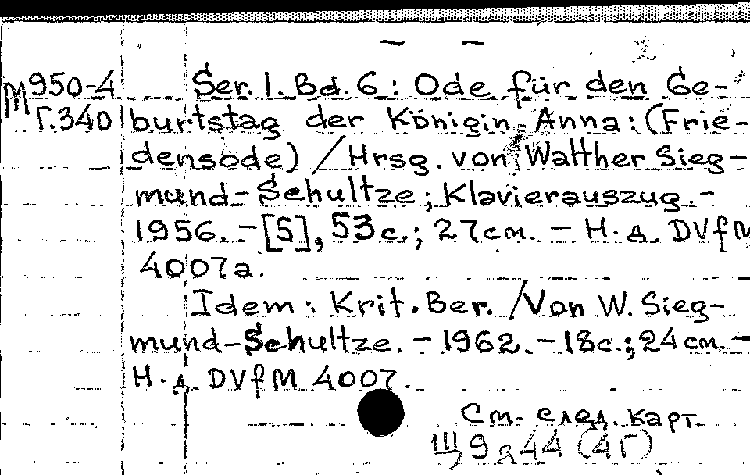 М950-4 Ser. I. Bd. 6: Ode für den Ge-
Г.340 burtstag der Königin Anna: (Frie-
densode) / Hrsg. von Walther Sieg-
mund-Schultze; Klavierauszug. -
1956. - [5], 53 с.; 27 см. - Н. д. DVfM
4007a.
Idem: Krit. Ber. / Von W. Sieg-
mund-Schultze. - 1962. - 18 с.; 24 см. -
Н. д. DVfM 4007.
См. след. карт.
Щ9а44(4Г)